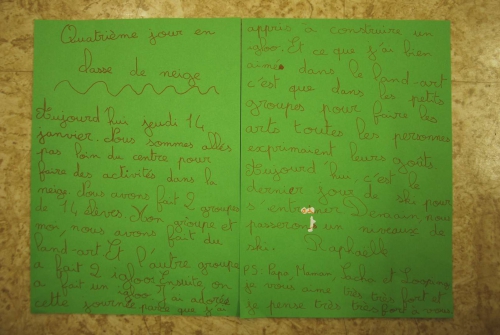 Quatrième jour en
classe de neige
Aujourd'hui jeudi 14
janvier. Nous sommes allés
pas loin du centre pour
faire des activités dans la
neige. Nous avons fait 2 groupes
de 14 élèves. Mon groupe et
moi, nous avons fait du
land-art. Et l'autre groupe
a fait 2 igloo. Ensuite, on
a fait un igloo. J'ai adorée
cette journée parce que j'ai
appris à construire un
igloo. Et ce que j'ai bien
aimé dans le land-art
c'est que dans les petits
groupes pour faire les
arts toutes les personnes
exprimaient leurs goûts.
Aujourd'hui, c'est le
dernier jour de ski pour
s'entrainer. Demain, nous
passerons un niveaux de
ski. Raphaëlle
PS: Papa, Maman, et
je vous aime très très fort et
je pense très très fort à vous